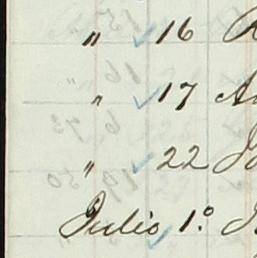 " 16
" 17
" 22
Julio 1.º